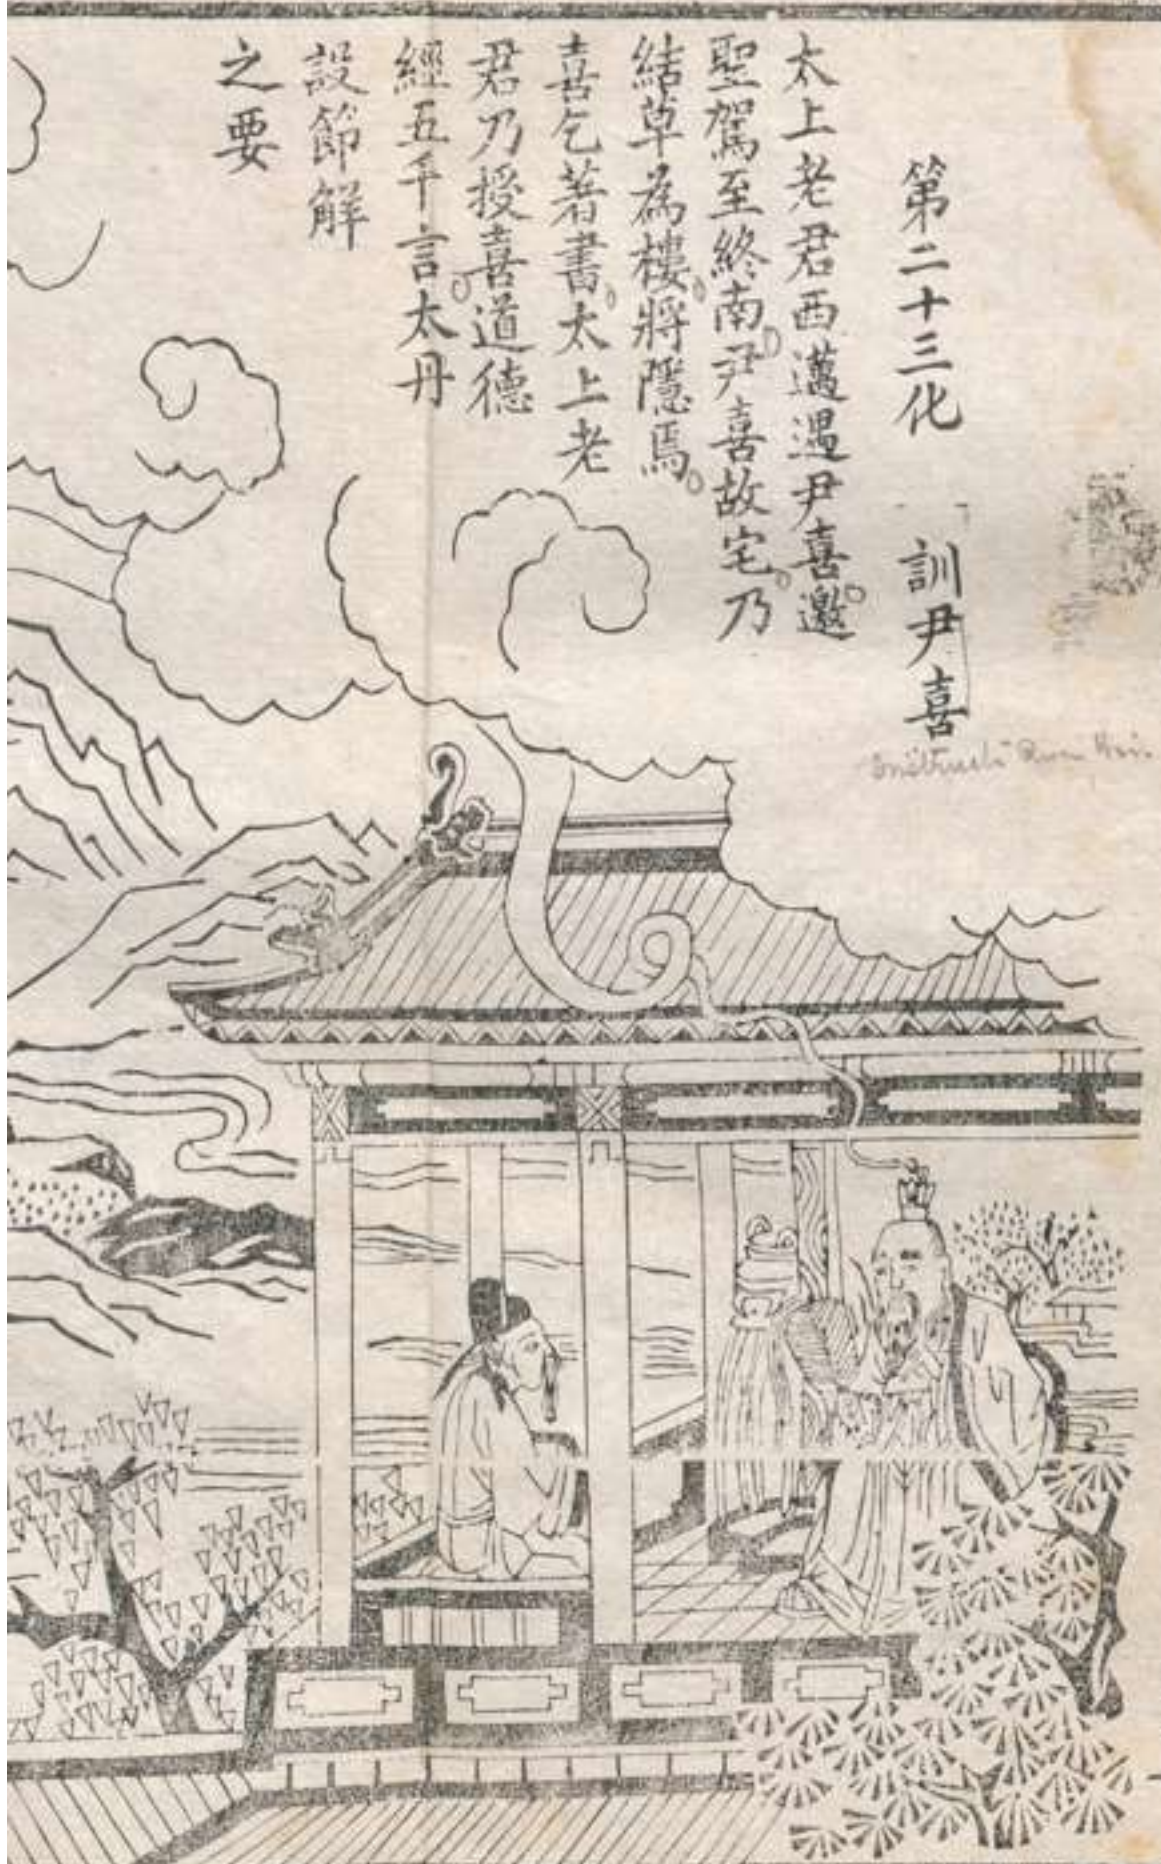 第二十三化 訓尹喜
太上老君西邁遇尹喜邀
聖駕至終南尹喜故宅乃
結草為樓將隱焉
喜乞著書太上老
君乃授喜道德
經五千言太丹
設節解
之要